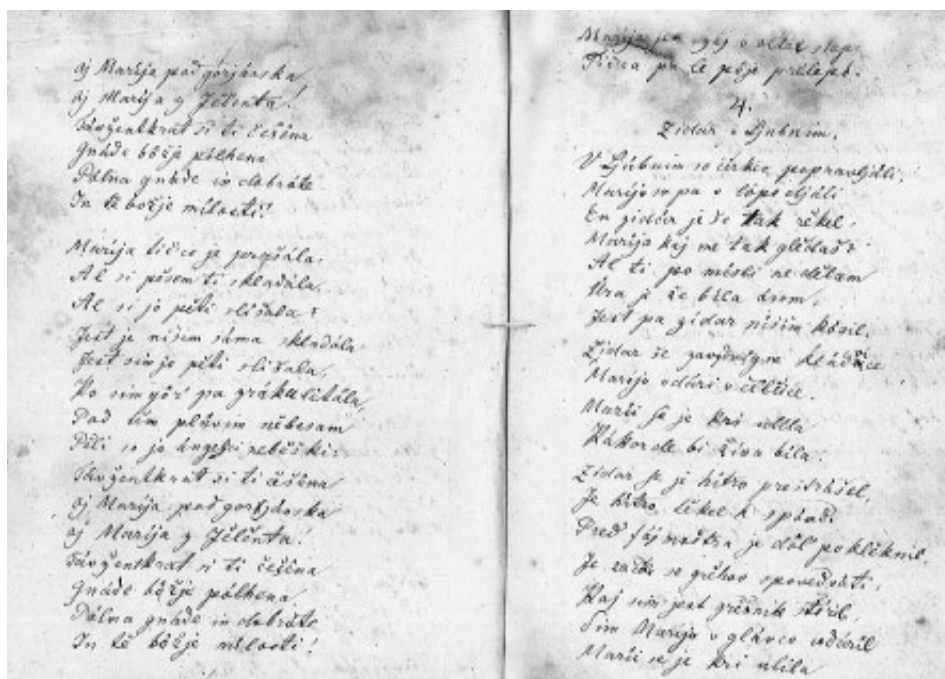 oj Marija podgorjanska
oj Marija z Jelenta!
Tavžentkrat si ti češena
Gnade božje polhena
Polna gnade in dobrote
In te božje milosti!
Marija tičico je prašala:
Al si pesem ti skladala
Al si jo peti slišala?
Jest je nisim sama skladala
Jest sim jo peti slišala,
Ko sim gor pa
Pod tim plavim nebesam
Peli so jo angelji nebeški:
Tavžentkrat si ti češena
oj Marija podgorjanska
oj Marija z Jelenta!
Tavžentkrat si ti češena
Gnade božje polhena
Polna gnade in dobrote
In te božje milosti!
Marija pa v oltar stopi
Tičica pa še poje prelepo.
4.
Zidar v Ljubnim.
V Ljubnim so cirkev popravljali
Marijo so pa v lopo djali
En zidar je do tak rekel,
Marija kaj me tak gledaš?
Al ti po misli ne delam
Ura je že bila osem,
Jest pa zidar nisim kosil.
Zidar še zavzdvigne kladvice
Marijo vdari v čelčice.
Marii se je kri vlila
Kakor de bi živa bila.
Zidar se je hitro prestrašel,
Je hitro tekel k spovdi
Pred je dol pokleknil
Je začel se grehov spovedvati,
Kaj sim jest grešnik storil,
Sim Marijo v glavco vdaril
Marii se je kri vlila